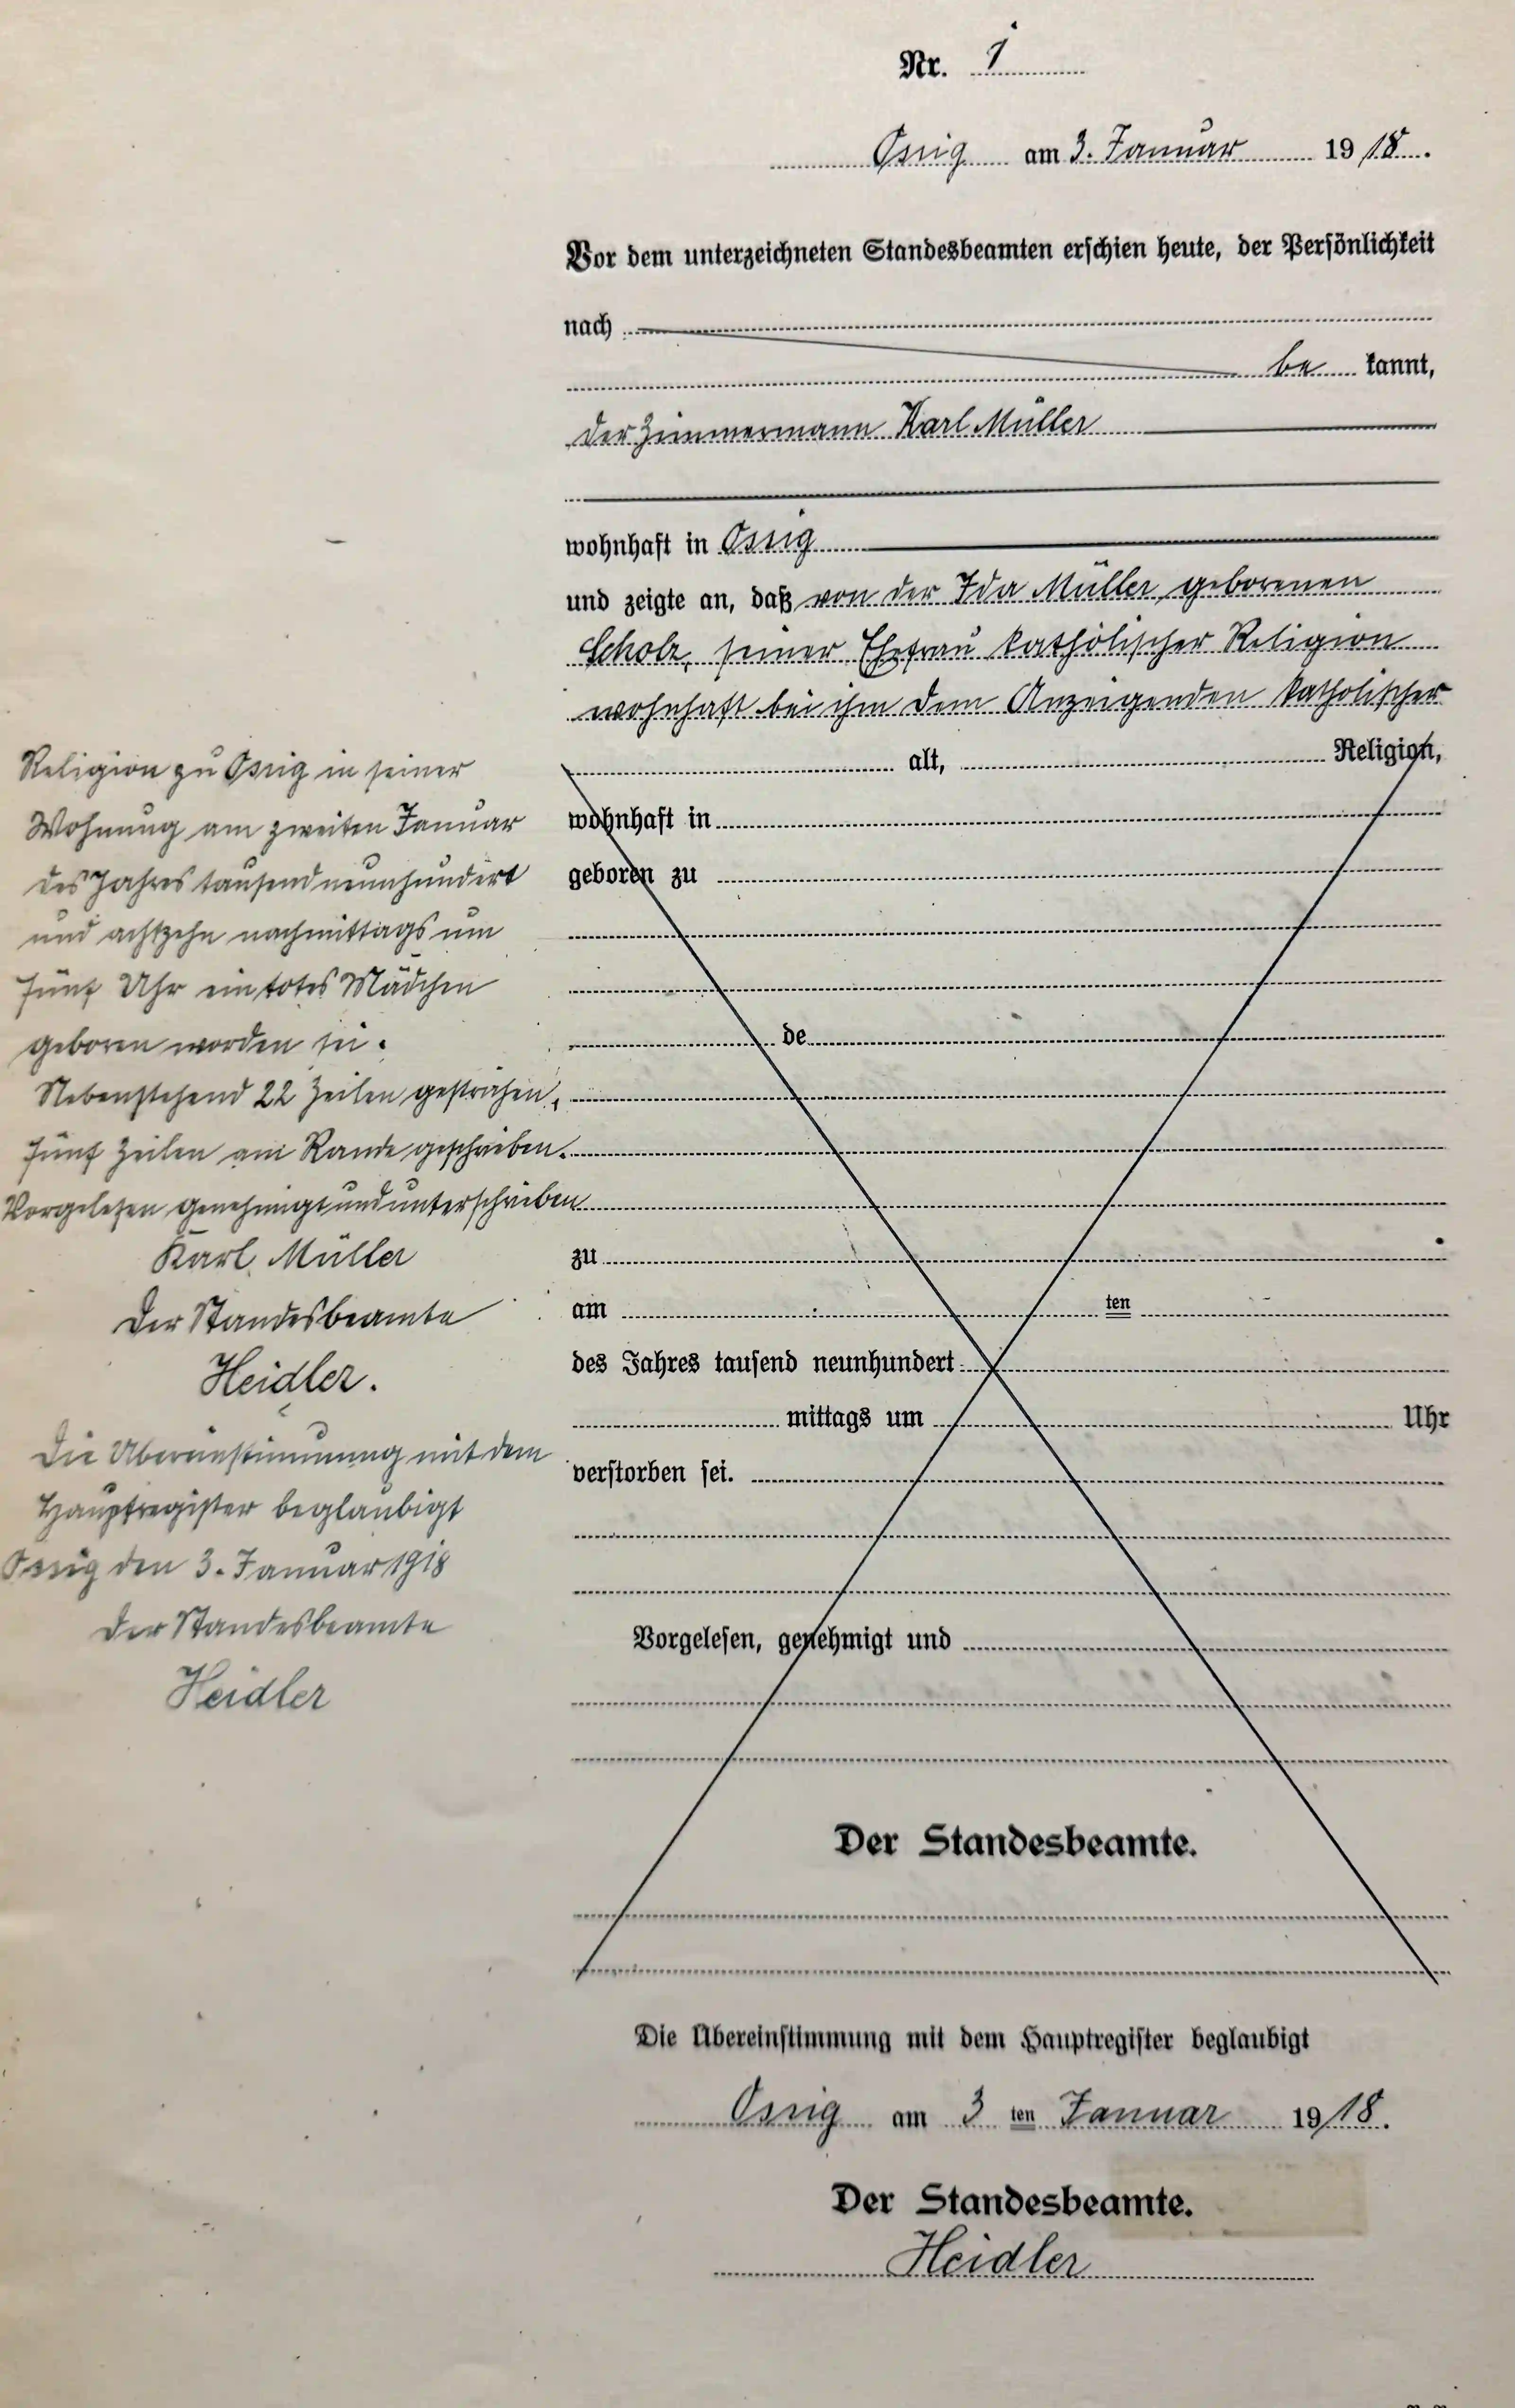 Nr. 1
Ossig am 3. Januar 1918.
Vor dem unterzeichneten Standesbeamten erschien heute, der Persönlichkeit
nach
be kannt,
der Zimmermann Karl Müller
wohnhaft in Ossig
und zeigte an, daß von der Ida Müller, geborenen
Scholz, seiner Ehefrau katholischer Religion
wohnhaft bei ihm dem Anzeigenden katholischer
Religion zu Ossig in seiner
Wohnung am zweiten Januar
des Jahres tausend neunhundert
und achtzehn nachmittags um
fünf Uhr ein totes Mädchen
geboren worden sei.
Nebenstehend 22 Zeilen gestrichen,
fünf Zeilen am Rande geschrieben.
Vorgelesen genehmigt und unterschrieben
Karl Müller
Der Standesbeamte
Heidler.
Die Übereinstimmung mit dem
Hauptregister beglaubigt
Ossig den 3. Januar 1918
Der Standesbeamte
Heidler
alt, Religion,
wohnhaft in
geboren zu
de
zu
am ten
des Jahres tausend neunhundert
mittags um Uhr
verstorben sei.
Vorgelesen, genehmigt und
Der Standesbeamte.
Die Übereinstimmung mit dem Hauptregister beglaubigt
Ossig am 3 ten Januar 1918.
Der Standesbeamte.
Heidler